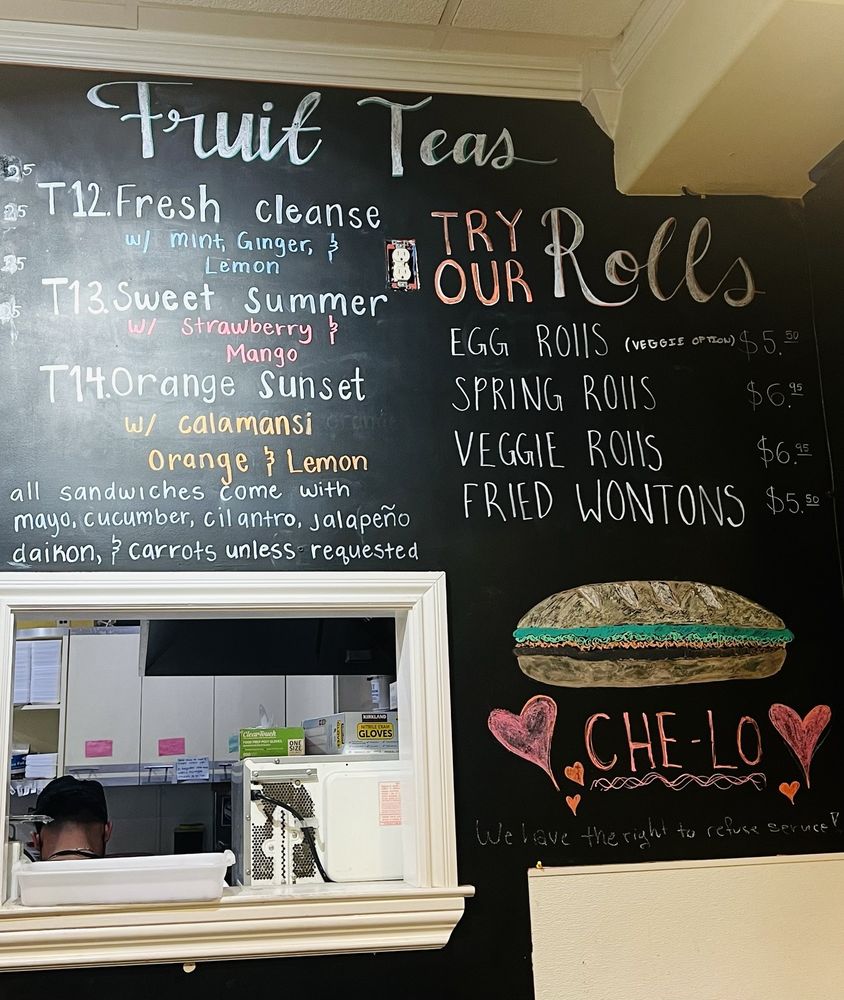 Fruit Teas
T12. Fresh cleanse
w/ mint, Ginger, &
Lemon
T13. Sweet Summer
w/ Strawberry &
Mango
T14. Orange Sunset
w/ calamansi
Orange & Lemon
all sandwiches come with
mayo, cucumber, cilantro, jalapeño
daikon, & carrots unless requested
TRY
OUR
Rolls
EGG ROllS (VEGGIE OPTION) $5.50
SPRING ROllS $6.95
VEGGIE ROllS $6.95
FRIED WONTONS $5.50
CHE-LO
We have the right to refuse service!
ClearTouch
ONE
SIZE
KIRKLAND
NITRILE EXAM
GLOVES